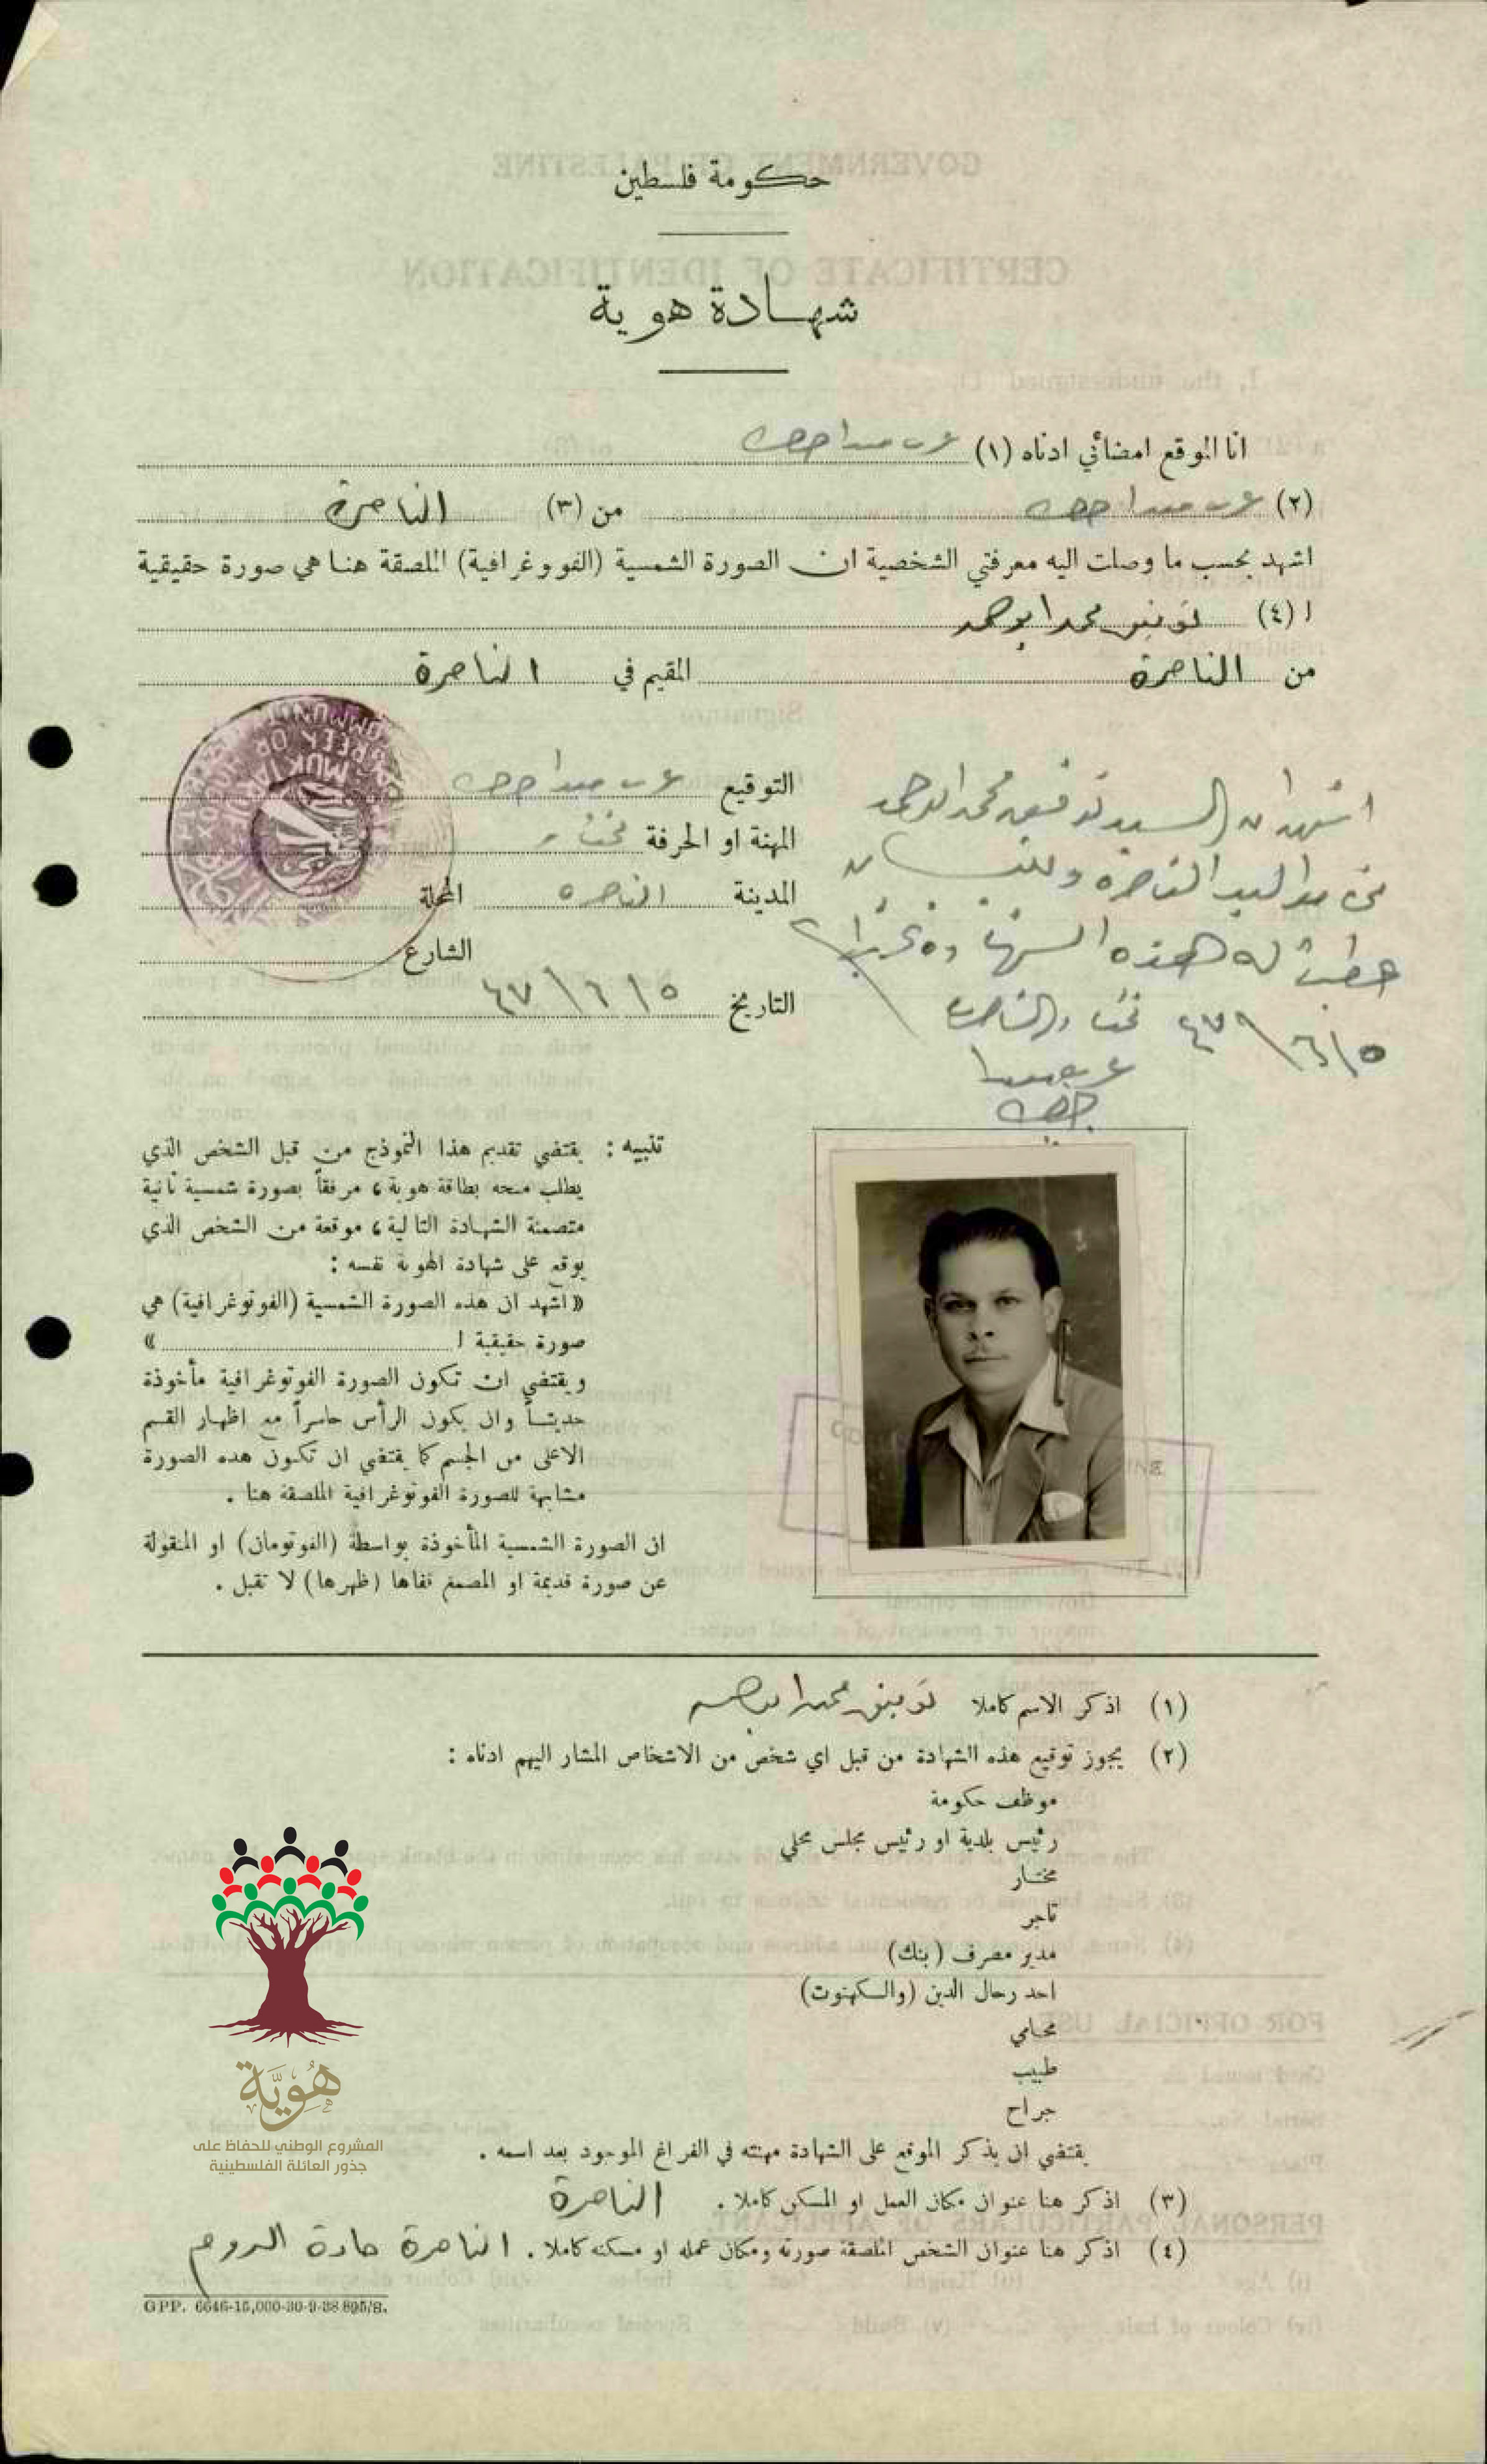 حكومة فلسطين
شهادة هوية
انا الموقع امضائي ادناه (١)
(٢) من (٣) الناصرة
اشهد بحسب ما وصلت اليه معرفتي الشخصية ان الصورة الشمسية (الفووغرافية) الملصقة هنا هي صورة حقيقية
ا (٤) توفيق محمد ابو حمد
من الناصرة المقيم في الناصرة
التوقيع
المهنة او الحرفة مختار
المدينة الناصره المحلة
الشارع
التاريخ ٤٧/٦/٥
MUKTAR
اشهد ان السيد توفيق محمد ابو حمد
من مواليد الناصره
له هذه الشهاده
٤٧/٦/٥ مختار الناصره
تنبيه : يقتضي تقديم هذا النموذج من قبل الشخص الذي
يطلب منحه بطاقة هوية ، مرفقاً بصورة شمسية ثانية
متضمنة الشهادة التالية ، موقعة من الشخص الذي
يوقع على شهادة الهوية نفسه :
« اشهد ان هذه الصورة الشمسية (الفوتوغرافية) هي
صورة حقيقية ا »
ويقتضي ان تكون الصورة الفوتوغرافية مأخوذة
حديثاً وان يكون الرأس حاسراً مع اظهار القسم
الاعلى من الجسم كما يقتضي ان تكون هذه الصورة
مشابهة للصورة الفوتوغرافية الملصقة هنا .
ان الصورة الشمسية المأخوذة بواسطة (الفوتومان) او المنقولة
عن صورة قديمة او المصمغ قفاها (ظهرها) لا تقبل .
(١) اذكر الاسم كاملا توفيق محمد ابو حمد
(٢) يجوز توقيع هذه الشهادة من قبل اي شخص من الاشخاص المشار اليهم ادناه :
موظف حكومة
رئيس بلدية او رئيس مجلس محلي
مختار
تاجر
مدير مصرف (بنك)
احد رجال الدين (والكهنوت)
محامي
طبيب
جراح
يقتضي ان يذكر الموقع على الشهادة مهنته في الفراغ الموجود بعد اسمه .
(٣) اذكر هنا عنوان مكان العمل او المسكن كاملا . الناصرة
(٤) اذكر هنا عنوان الشخص الملصقة صورته ومكان عمله او مسكنه كاملا . الناصرة حارة الروم
GPP. 6646-15,000-30-9-38 895/S.
هُوِيَّة
المشروع الوطني للحفاظ على
جذور العائلة الفلسطينية